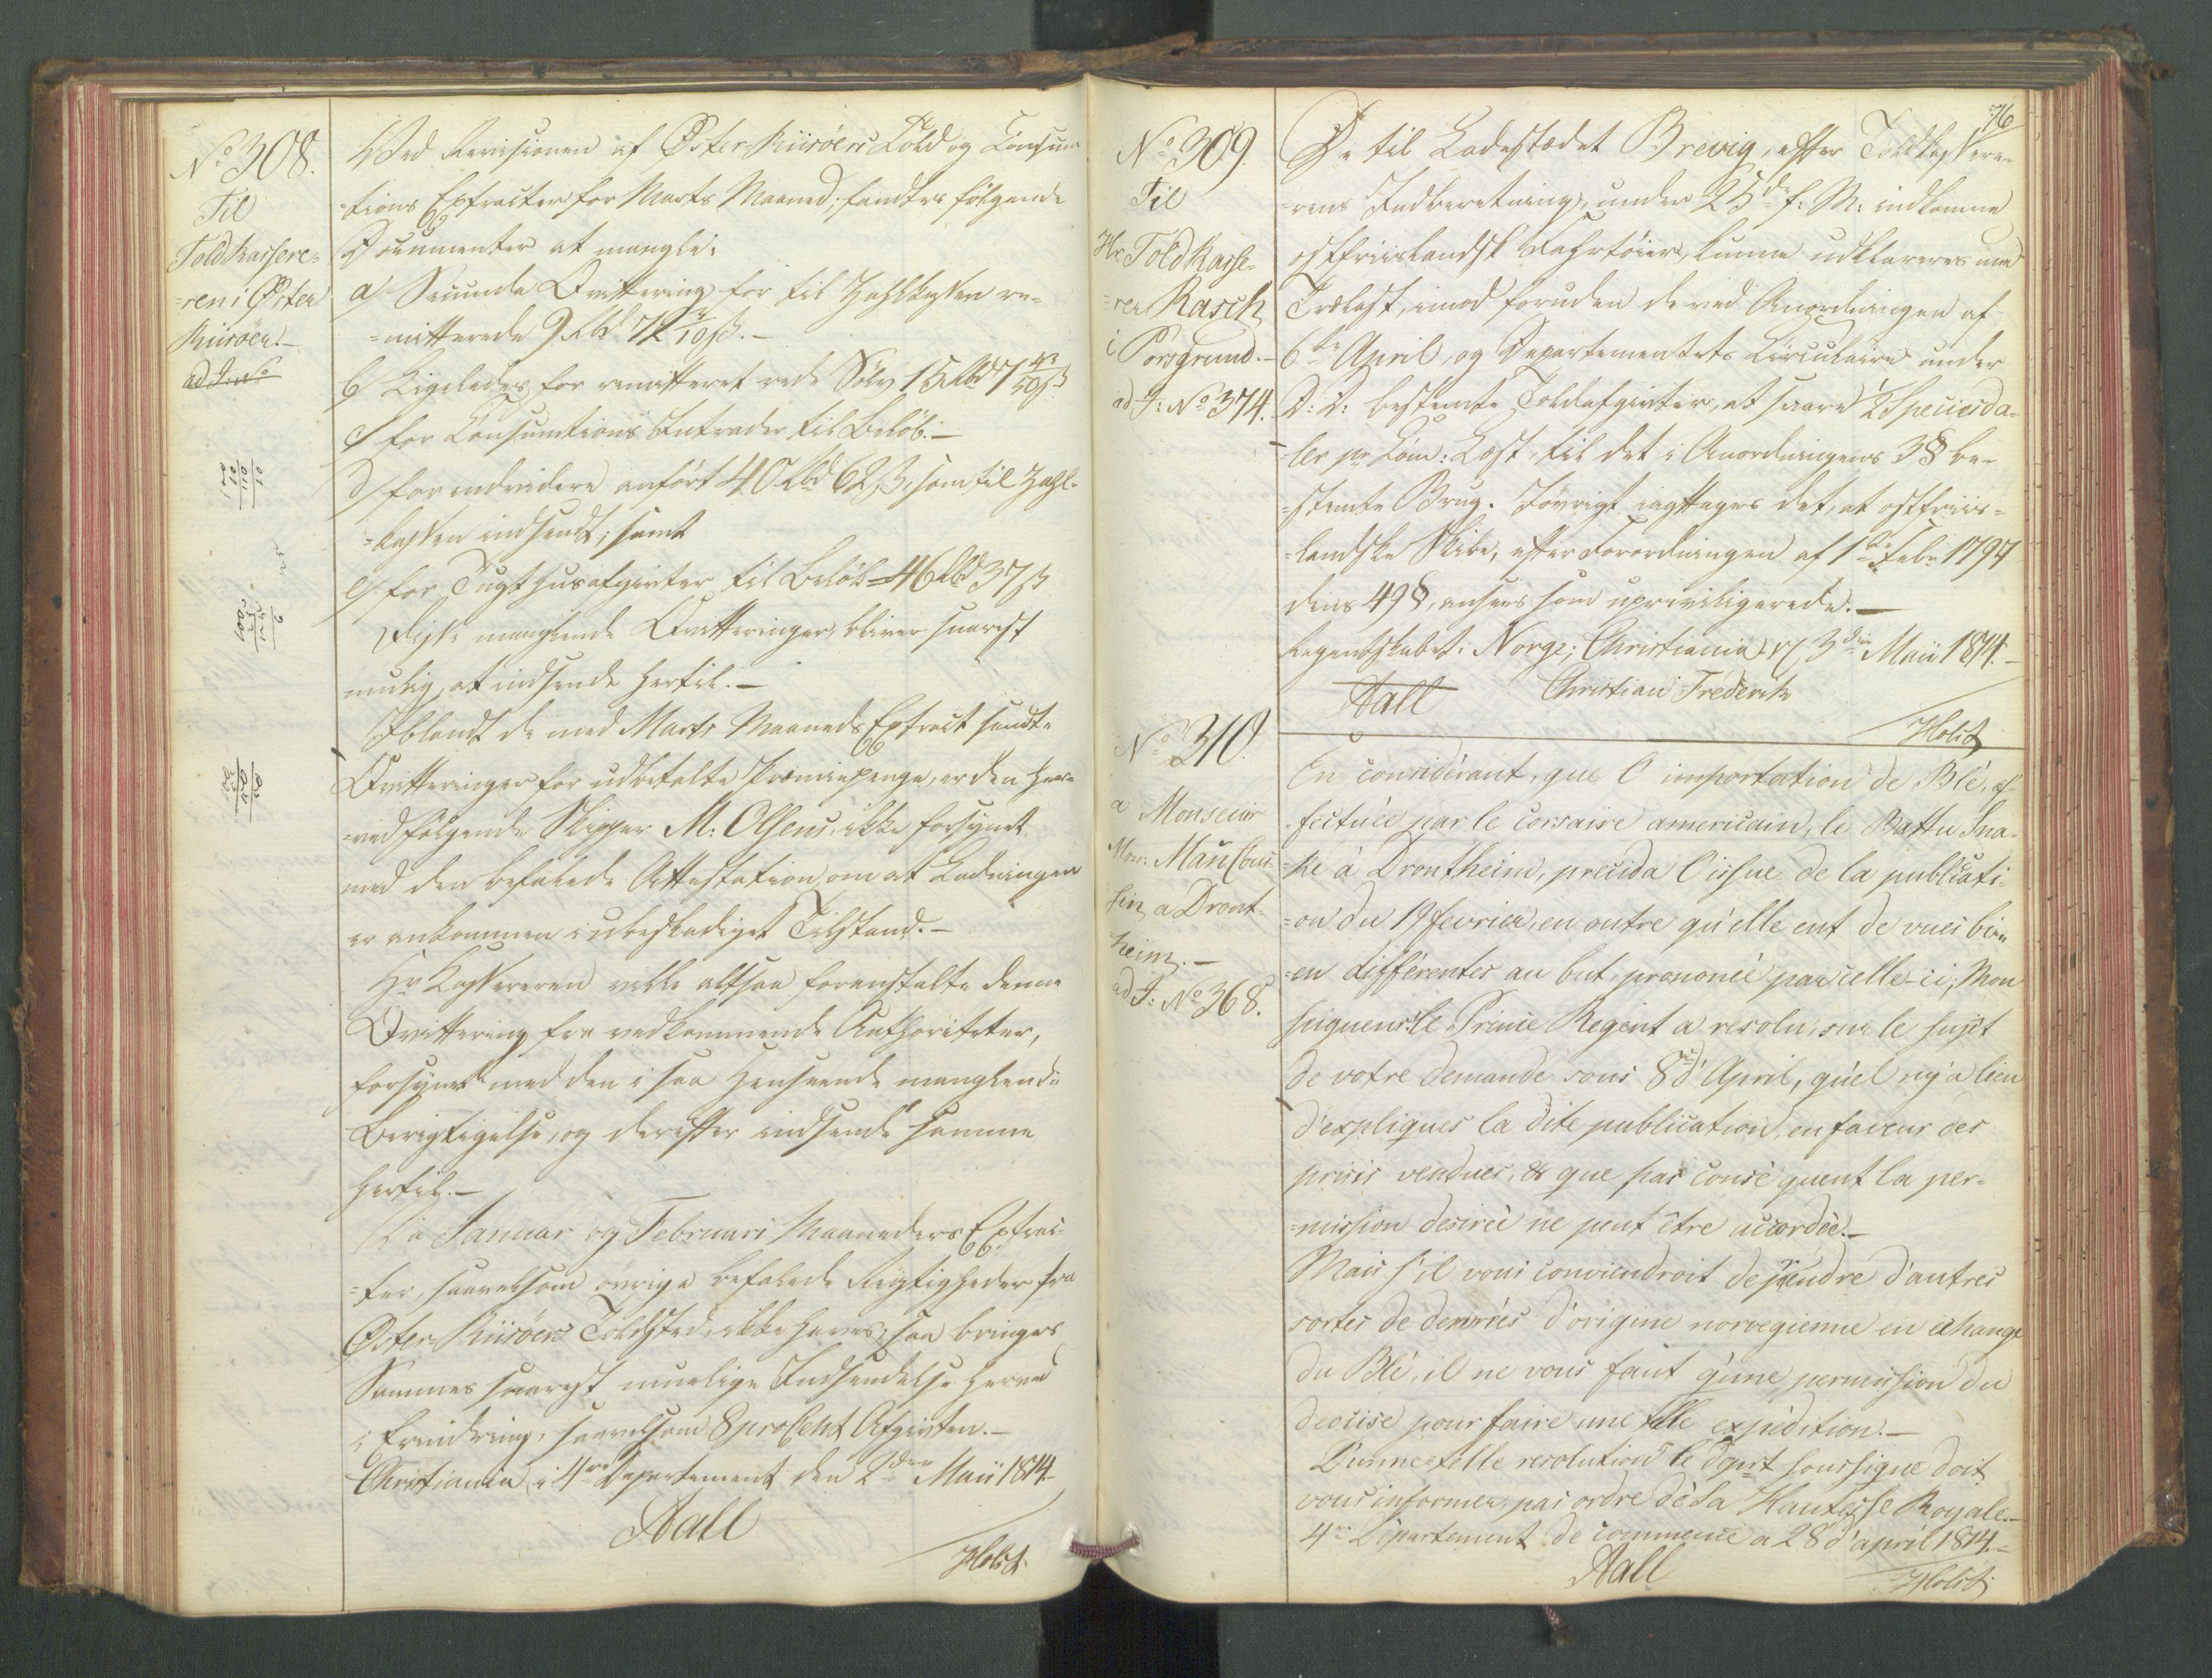 No 308.
Til
Toldkassere-
=ren i Øster
Riisöer.
ad J: No
Ved Revisionen af Øster-Riisöers Told og Consum
=tions Extracter for Marts Maaned, fandtes følgende
Documenter at mangle:
a) Secunda Qvittering for til Zahlkassen re-
=mitterede 9 Rbd 72
b) Ligeledes for remitteret rede Sølv 15 Rbd 7
c) for Consumtions Intrader til Beløb.-
d) for endvidere anført 40 Rbd 62 ß, som til Zahl-
=kassen indsendt; samt
e) for Tugthusafgivter til Beløb 46 Rbd 37 ß
Disse manglende Qvitteringer, bliver snarest
mulig, at indsende hertil.-
Iblandt de med Marts Maaneds Extract sendte
Qvitteringer for udbetalte Præmiepenge, er den her-
=ved følgende Skipper M: Olsens, ikke forsynet
med den befalede Attestation om at Ladningen
er ankommen i ubeskadiget Tilstand.-
Hr Kassereren ville altsaa foranstalte denne
Qvittering fra vedkommende Authoriteter,
forsynet med den i saa Henseende manglende
Berigtigelse, og derefter indsende samme
hertil.-
Da Januar og Februari Maaneders Extrac-
=ter, saavelsom øvrige befalede Rigtigheder fra
Øster-Riisöers Toldsted, ikke haves; saa bringes
Sammes snarest muelige Indsendelse herved
i Erindring, saavelsom 8 proCent Afgivten.-
Christiania i 4de Departement den 2den Maii 1814
Aall
Holst.
76
No 309.
Til
Hr Toldkasse-
=rer Rasch
i Porsgrund.-
ad J: No 374.
De til Ladestædet Brevig, efter Toldkassere-
=rens Indberetning, under 25de f: M: indkomne
ostfriislandsk Fahrtøier, kunne udklareres med
Trælast, imod foruden de ved Anordningen af
6te April, og Departementets Circulaire under
D: D: bestemte Toldafgivter, at svare 2 Speciesda-
ler pr Com: Læst, til det i Anordningens 3 § be-
=stemte Brug. Iøvrigt iagttages det, at ostfriis-
=landske Skibe, efter Forordningen af 1te Febr 1797
dens 49 §, ansees som upriviligerede.-
Regentskabet i Norge; Christiania d. 3die Maii 1814.-
Christian Frederik
Aall
Holst
No 310.
a Monseiur
Mon: Mau Cous-
sin, a Dront-
heim.-
ad J: No 368.
En considèrant, que l'importation de Blé, ef-
=fectuée par le corsaire americain, le Rattu Sna-
=ke à Drontheim, precida l'issue de la publicati-
=on du 19 fevrier, en outre qu'elle ent de vues bi-
=en différentes au but, prononcé par celle-ci; Mon
seigneur le Prince Regent a resolu, sur le sujet
de votre demande sous 8 d'April, qu'el n'y a lieu
d'expliques la dite publication, en faveur des
prises vendues, & que par consé quent la per-
=mission desirée ne peut être accordée.-
Mais s'il vous conviendroit de prendre d'autres
sortes de denrées d'origine norvegienne en echange
du Blé, il ne vous faut q'une permission du
deocise pour faire une telle expédition.-
D'une telle resolution le Dept soussigne doit
vous informer, par ordre de Sa Hautesse Royale.-
4me Departement de commerce a 28 d'april 1814.-
Aall
Holst